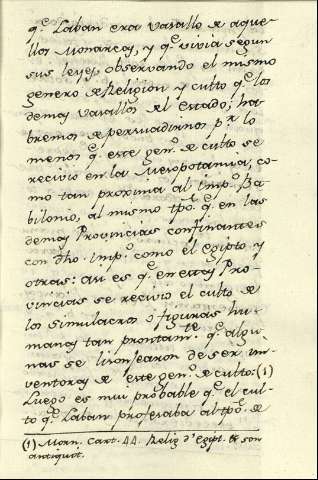 q.ᵉ Laban era Vasallo de aque-
llos Monarcas, y q.ᵉ vivia segun
sus leyes observando el mismo
genero de Religion y culto q.ᵉ los
demas Vasallos del Estado; ha-
bremos de persuadirnos p.ʳ lo
menos q.ᵉ este gen.º de culto se
recivio en la Mesopotamia, co-
mo tan proxima al imp.º Ba-
bilonio, al mismo tpo. q.ᵉ en las
demas Provincias confinantes
con dho. imp.º como el egipto y
otras: asi es q.ᵉ en estas Pro-
vincias se recivio el culto de
los simulacros ó figuras hu-
manas tan prontam.ᵗᵉ q.ᵉ algu-
nas se lisonjearon de ser in-
ventoras de este gen.º de culto: (1)
Luego es mui probable q.ᵉ el cul-
to q.ᵉ Laban profesaba al tpo. de
(1) Morn. Cart. 44. Relig. d'Egipt. & son
antiquit.